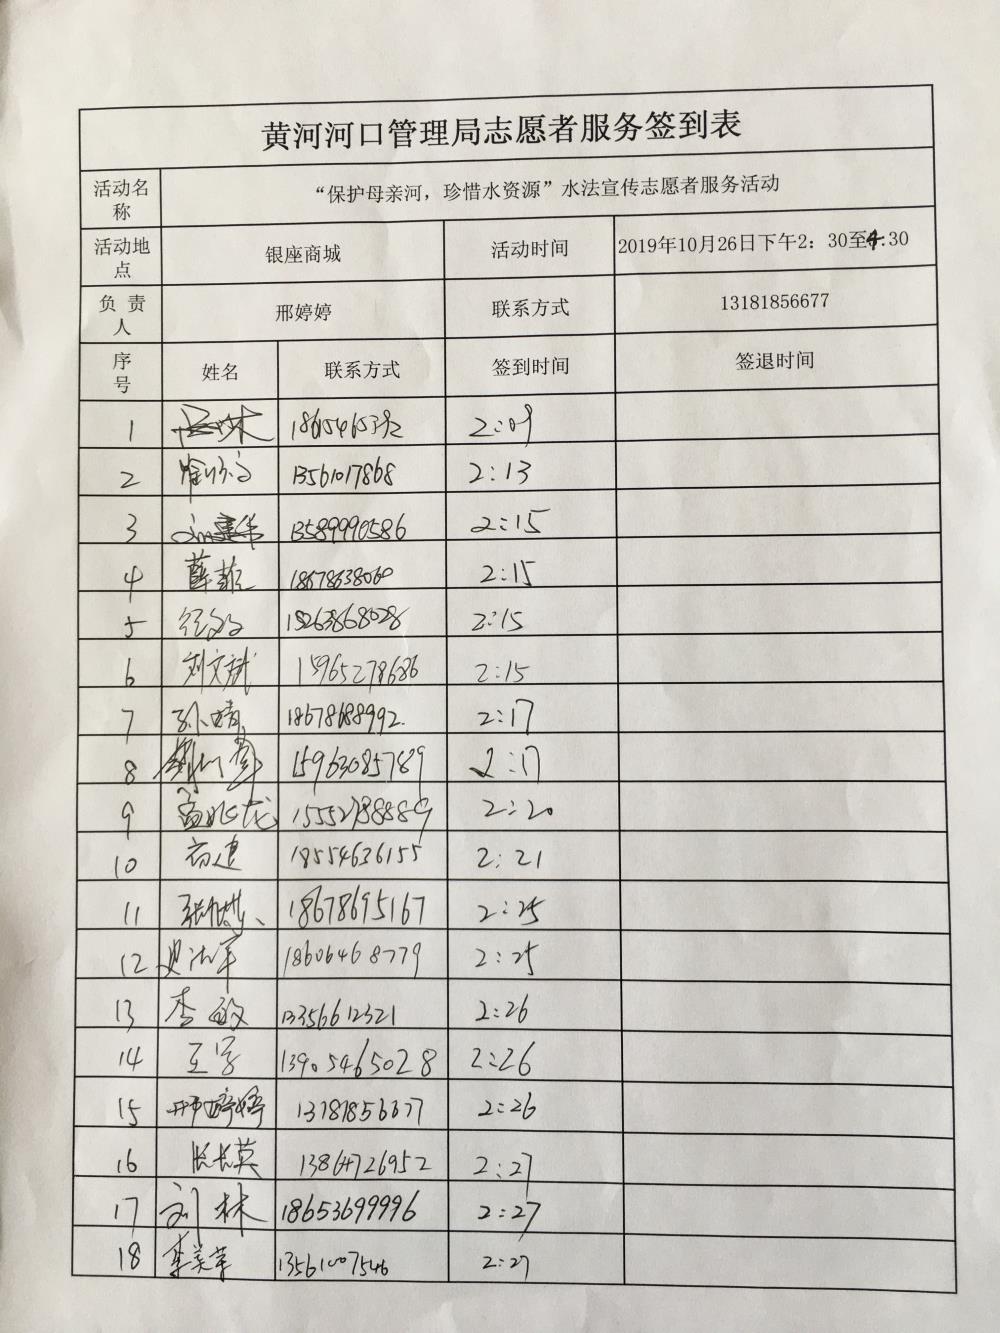 黄河河口管理局志愿者服务签到表
活动名称 “保护母亲河，珍惜水资源”水法宣传志愿者服务活动
活动地点 银座商城 活动时间 2019年10月26日下午2：30至4:30
负责人 邢婷婷 联系方式 13181856677
序号 姓名 联系方式 签到时间 签退时间
1 2:09
2 13561017868 2:13
3 13589990586 2:15
4 薛菲 18678638060 2:15
5 15263868028 2:15
6 刘文斌 15965278686 2:15
7 孙晴 18678688992 2:17
8 15963085789 2:17
9 孟兆龙 15552788889 2:20
10 18554636155 2:21
11 18678695167 2:25
12 18606468779 2:25
13 李敏 13356612321 2:26
14 王宇 13905465028 2:26
15 邢婷婷 13181856677 2:26
16 13864726952 2:27
17 刘林 18653699996 2:27
18 李美荣 13561007546 2:27